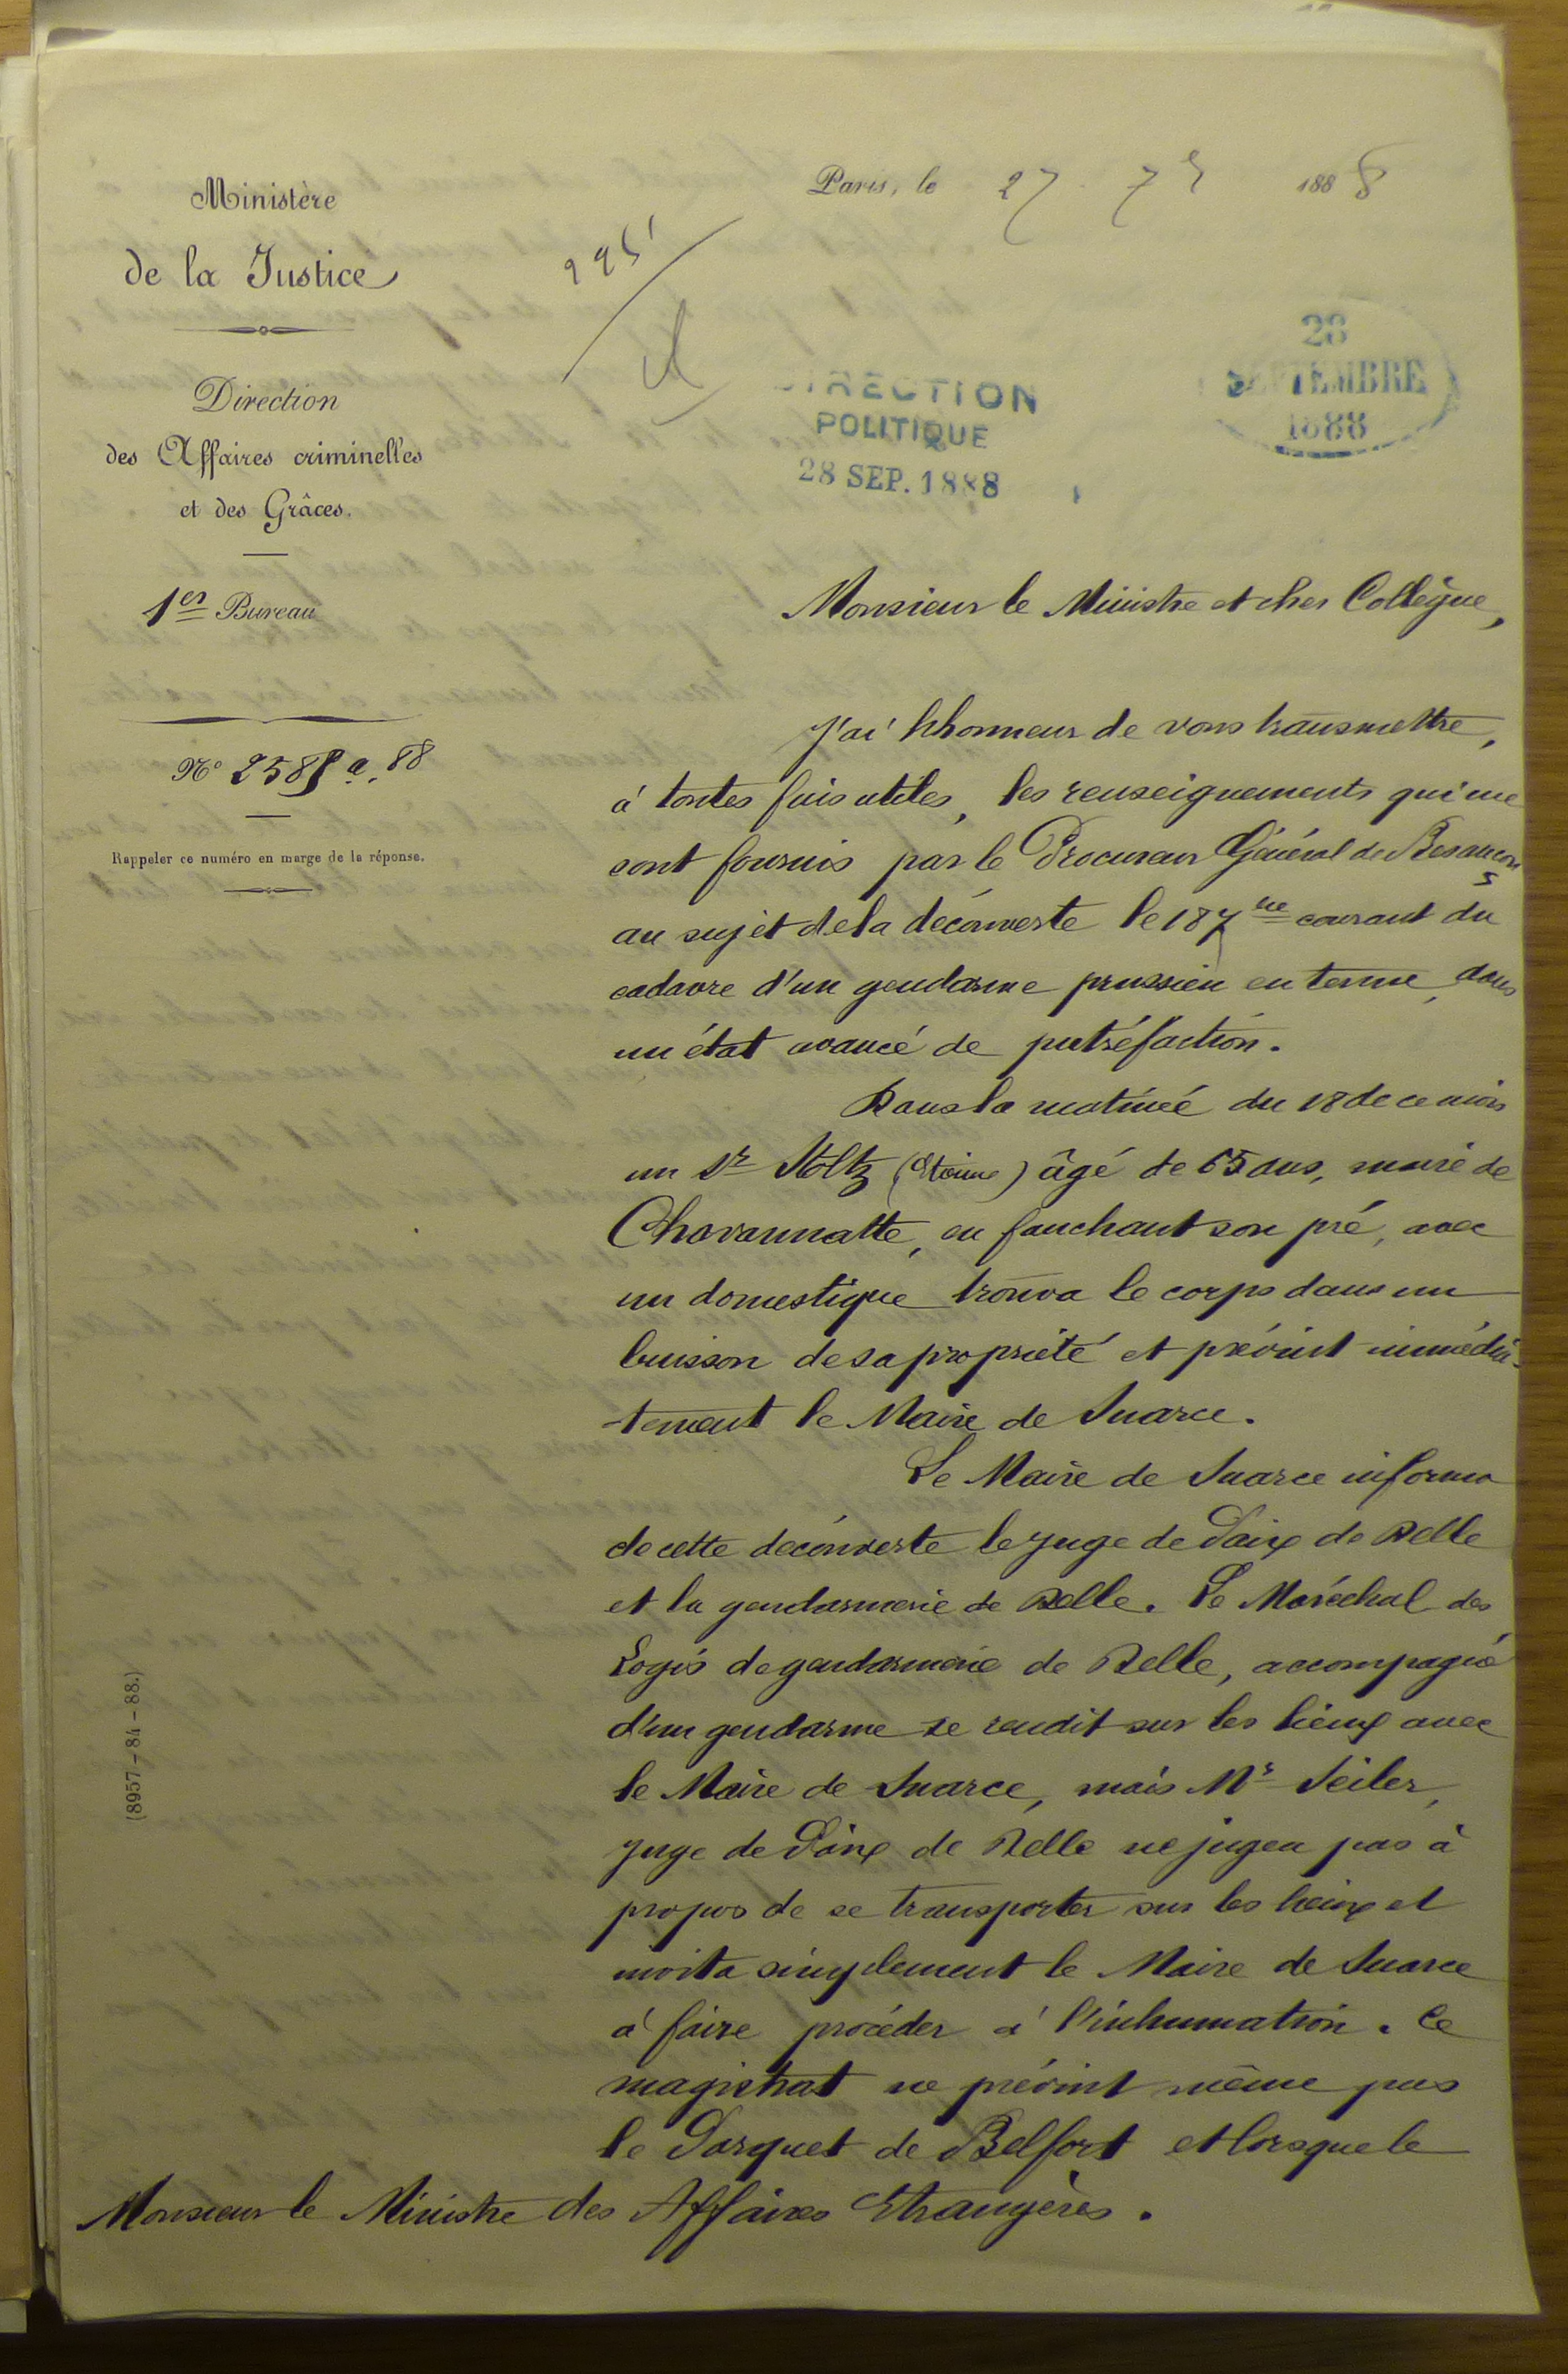 Ministère
de la Justice
Direction
des Affaires criminelles
et des Grâces.
1er Bureau
No 2588 a. 88
Rappeler ce numéro en marge de la réponse.
(8957-84-88.)
Paris, le 27 7e 1888
DIRECTION
POLITIQUE
28 SEP. 1888
28
SEPTEMBRE
1888
Monsieur le Ministre et cher Collègue,
J'ai l'honneur de vous transmettre,
à toutes fins utiles, les renseignements qui me
sont fournis par le Procureur Général de Besançon
au sujet de la découverte le 18 7bre courant du
cadavre d'un gendarme prussien en tenue, dans
un état avancé de putréfaction.
Dans la matinée du 18 de ce mois
un Sr Stoltz (Etienne) âgé de 65 ans, maire de
Chavannatte, en fauchant son pré, avec
un domestique trouva le corps dans un
buisson de sa propriété et prévint immédia-
-tement le Maire de Suarce.
Le Maire de Suarce informa
de cette découverte le Juge de Paix de Delle
et la gendarmerie de Delle. Le Maréchal des
Logis de gendarmerie de Delle, accompagné
d'un gendarme se rendit sur les lieux avec
le Maire de Suarce, mais Mr Seiler,
Juge de Paix de Delle ne jugea pas à
propos de se transporter sur les lieux et
invita simplement le Maire de Suarce
à faire procéder à l'inhumation. Ce
magistrat ne prévint même pas
le Parquet de Belfort et lorsque le
Monsieur le Ministre des Affaires Etrangères.